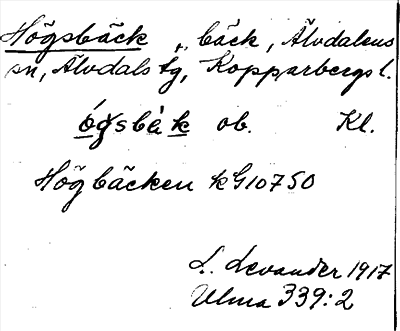 Högsbäck, bäck, Älvdalens
sn, Älvdals tg, Kopparbergs l.
ó̲gsbä̀k̲ ob. Kl.
Högbäcken kG10750
L. Levander 1917
Ulma 339:2